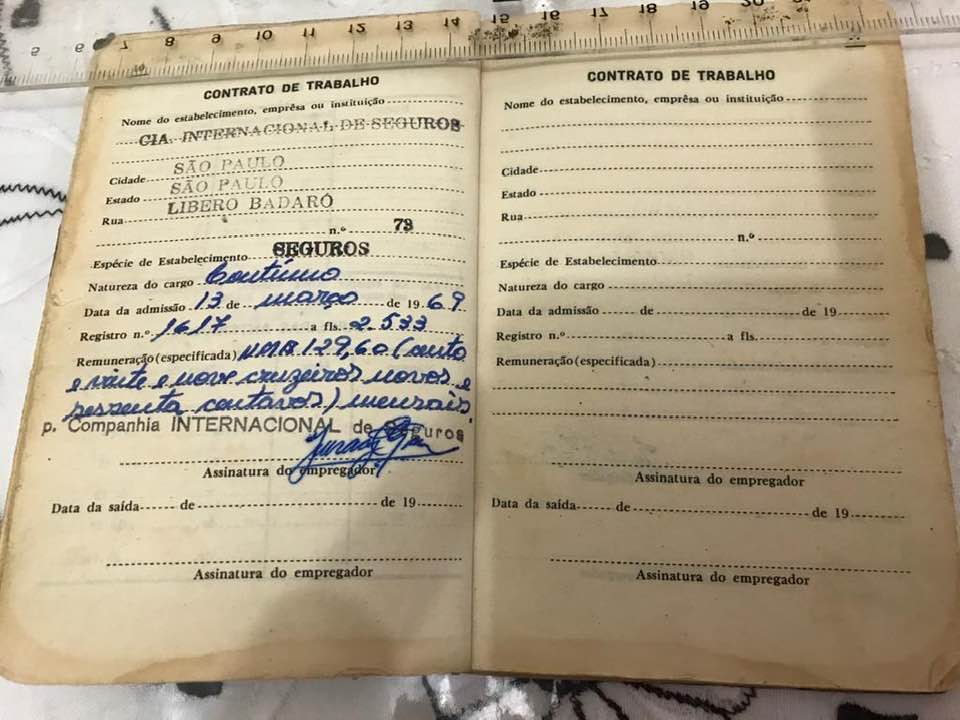 5 6 7 8 9 10 11 12 13 14 15 16 17 18 19 20 21 22
CONTRATO DE TRABALHO
Nome do estabelecimento, emprêsa ou instituição
CIA. INTERNACIONAL DE SEGUROS
Cidade SÃO PAULO
Estado SÃO PAULO
Rua LIBERO BADARÓ
n.º 73
Espécie de Estabelecimento SEGUROS
Natureza do cargo Contínuo
Data da admissão 13 de março de 1969
Registro n.º 1617 a fls. 2.533
Remuneração (especificada) 129,60 (cento
e vinte e nove cruzeiros novos e
sessenta centavos) mensais
p. Companhia INTERNACIONAL de Seguros
Assinatura do empregador
Data da saída de de 19
Assinatura do empregador
CONTRATO DE TRABALHO
Nome do estabelecimento, emprêsa ou instituição
Cidade
Estado
Rua
n.º
Espécie de Estabelecimento
Natureza do cargo
Data da admissão de de 19
Registro n.º a fls.
Remuneração (especificada)
Assinatura do empregador
Data da saída de de 19
Assinatura do empregador